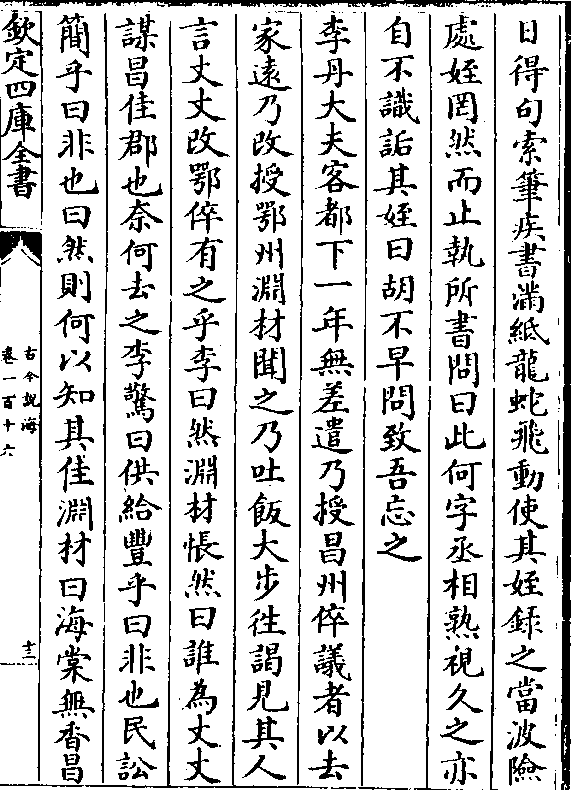 日得句索筆疾書滿紙龍蛇飛動使其姪録之當波險
處姪罔然而止執所書問曰此何字丞相熟視久之亦
自不識詬其姪曰胡不早問致吾忘之
李丹大夫客都下一年無差遣乃授昌州倅議者以去
家遠乃改授鄂州淵材聞之乃吐飯大步徃謁見其人
言丈丈改鄂倅有之乎李曰然淵材悵然曰誰為丈丈
謀昌佳郡也奈何去之李驚曰供給豐乎曰非也民訟
簡乎曰非也曰然則何以知其佳淵材曰海棠無香昌
欽定四庫全書
古今說海
卷一百十六
十三